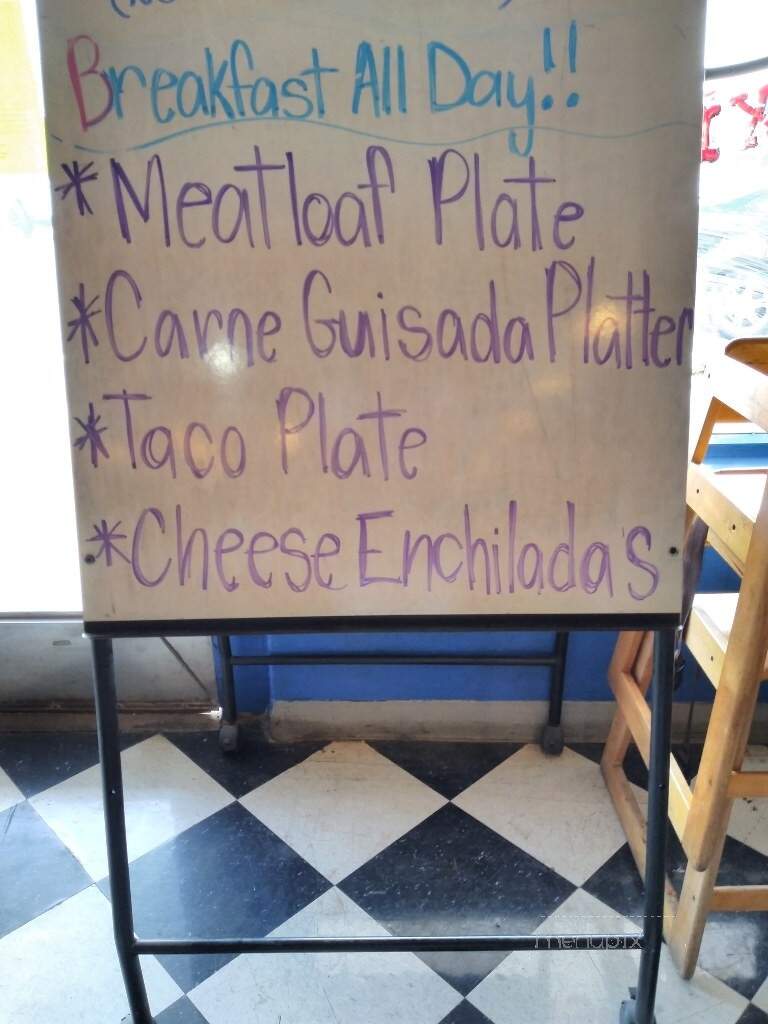 Breakfast All Day!!
* Meatloaf Plate
* Carne Guisada Platter
* Taco Plate
* Cheese Enchilada's
menupix